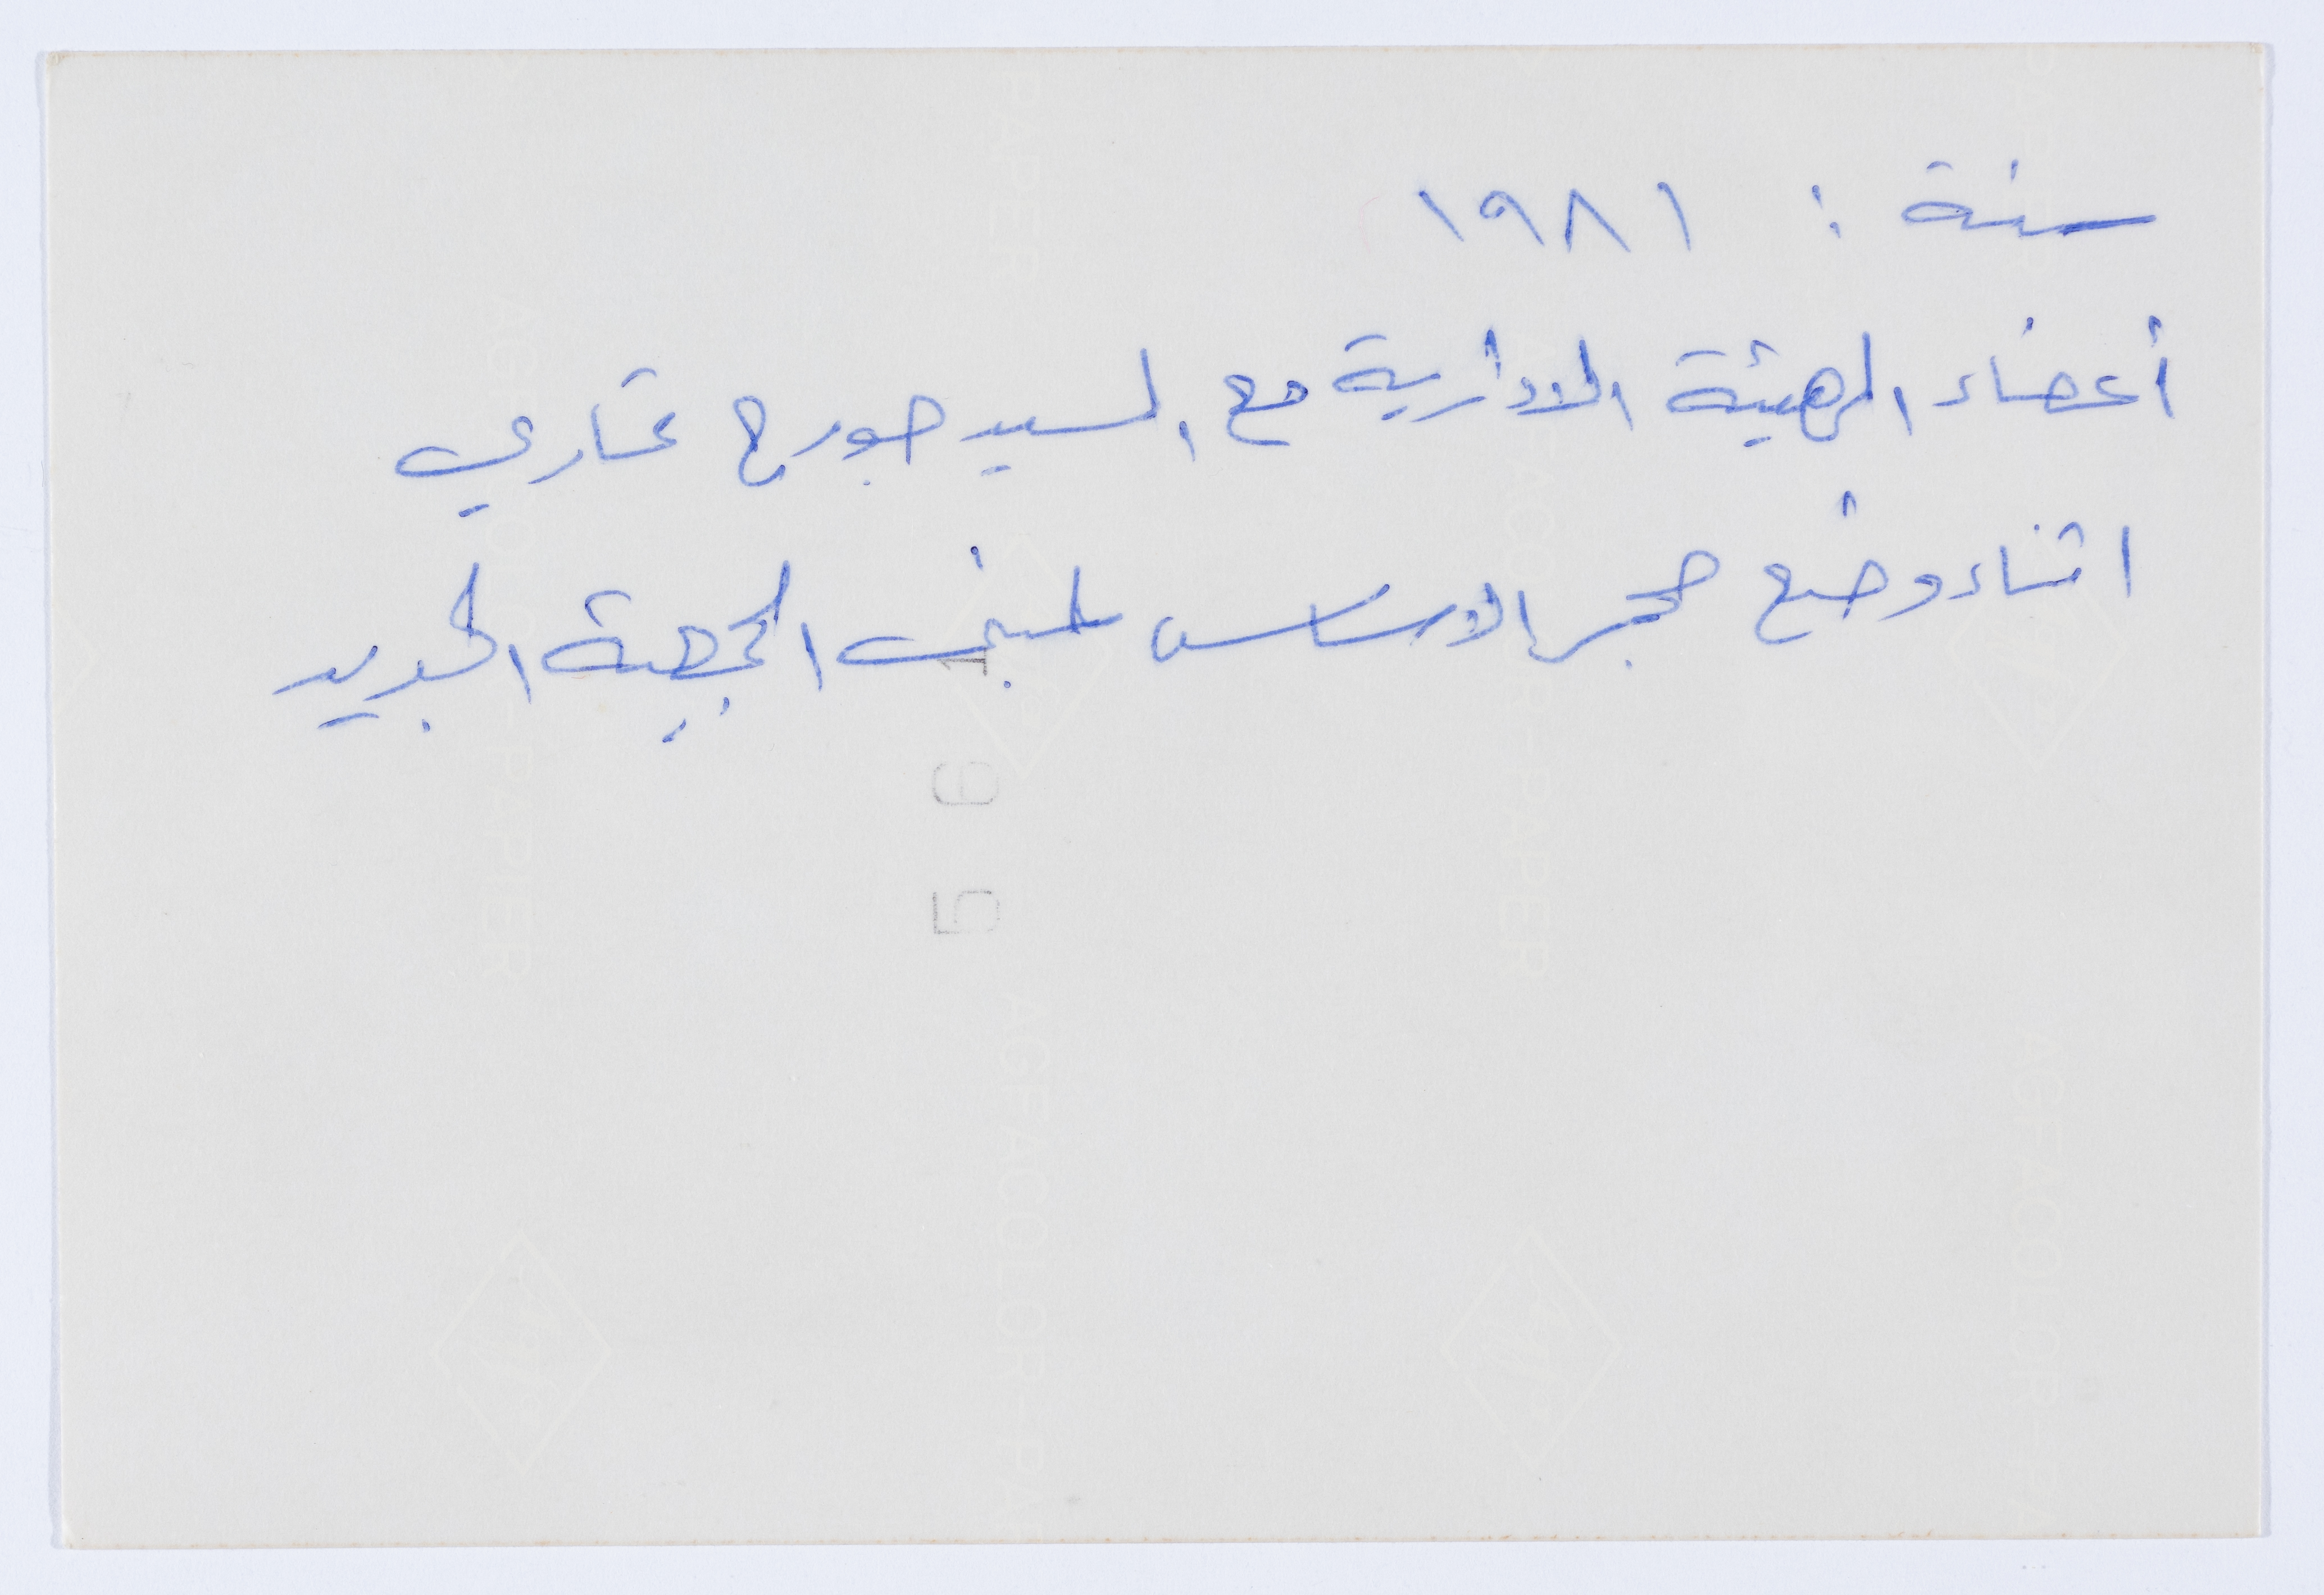 سنة : ١٩٨١
أعضاء الهيئة الادارية مع السيد جورج
اثناء وضع حجر الاساس لمبنى الجمعية الجديد
5 0 1
AGFACOLOR-PAPER